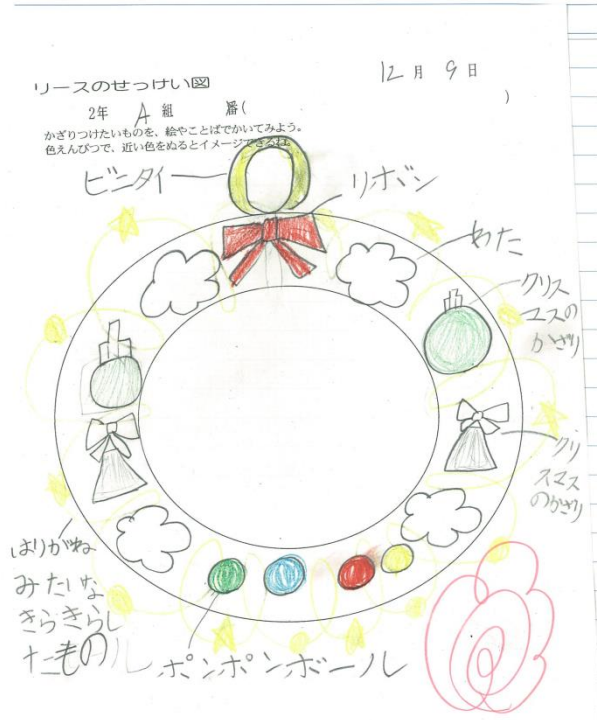 12月9日
リースのせっけい図
2年 A 組 番(
)
かざりつけたいものを、絵やことばでかいてみよう。
色えんぴつで、近い色をぬるとイメージできるね。
ビニタイ
リボン
わた
クリス
マスの
かざり
クリ
スマス
のかざり
はりがね
みたいな
きらきらし
たもの
ポンポンボール